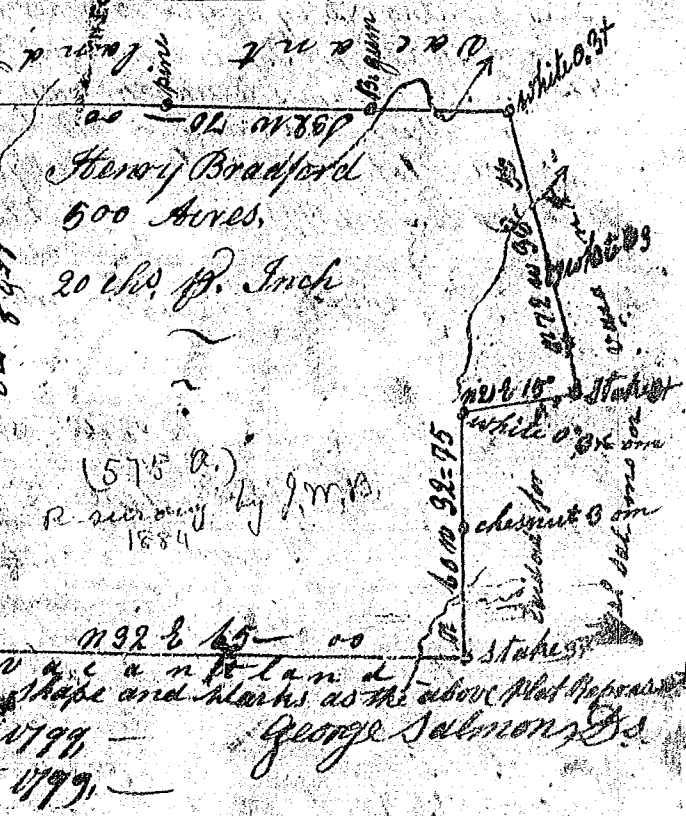 vacant land
pine
B. Gum
white o. 3x
S 32 W 70 — 00
Henry Bradford
500 Acres,
20 chs. p. Inch
N 72 W
white o 3
Stake 3x
white o 3x om
N 60 W 32=75
chesnut 3 om
(575 a.)
Resurvey by J.M.B.
1884
Laid out for
Salmons
N 32 E 65 — 00
Stake 3x
vacant land
shape and Marks as the above Plat Represents
1799, —
George Salmons DS
1799, —